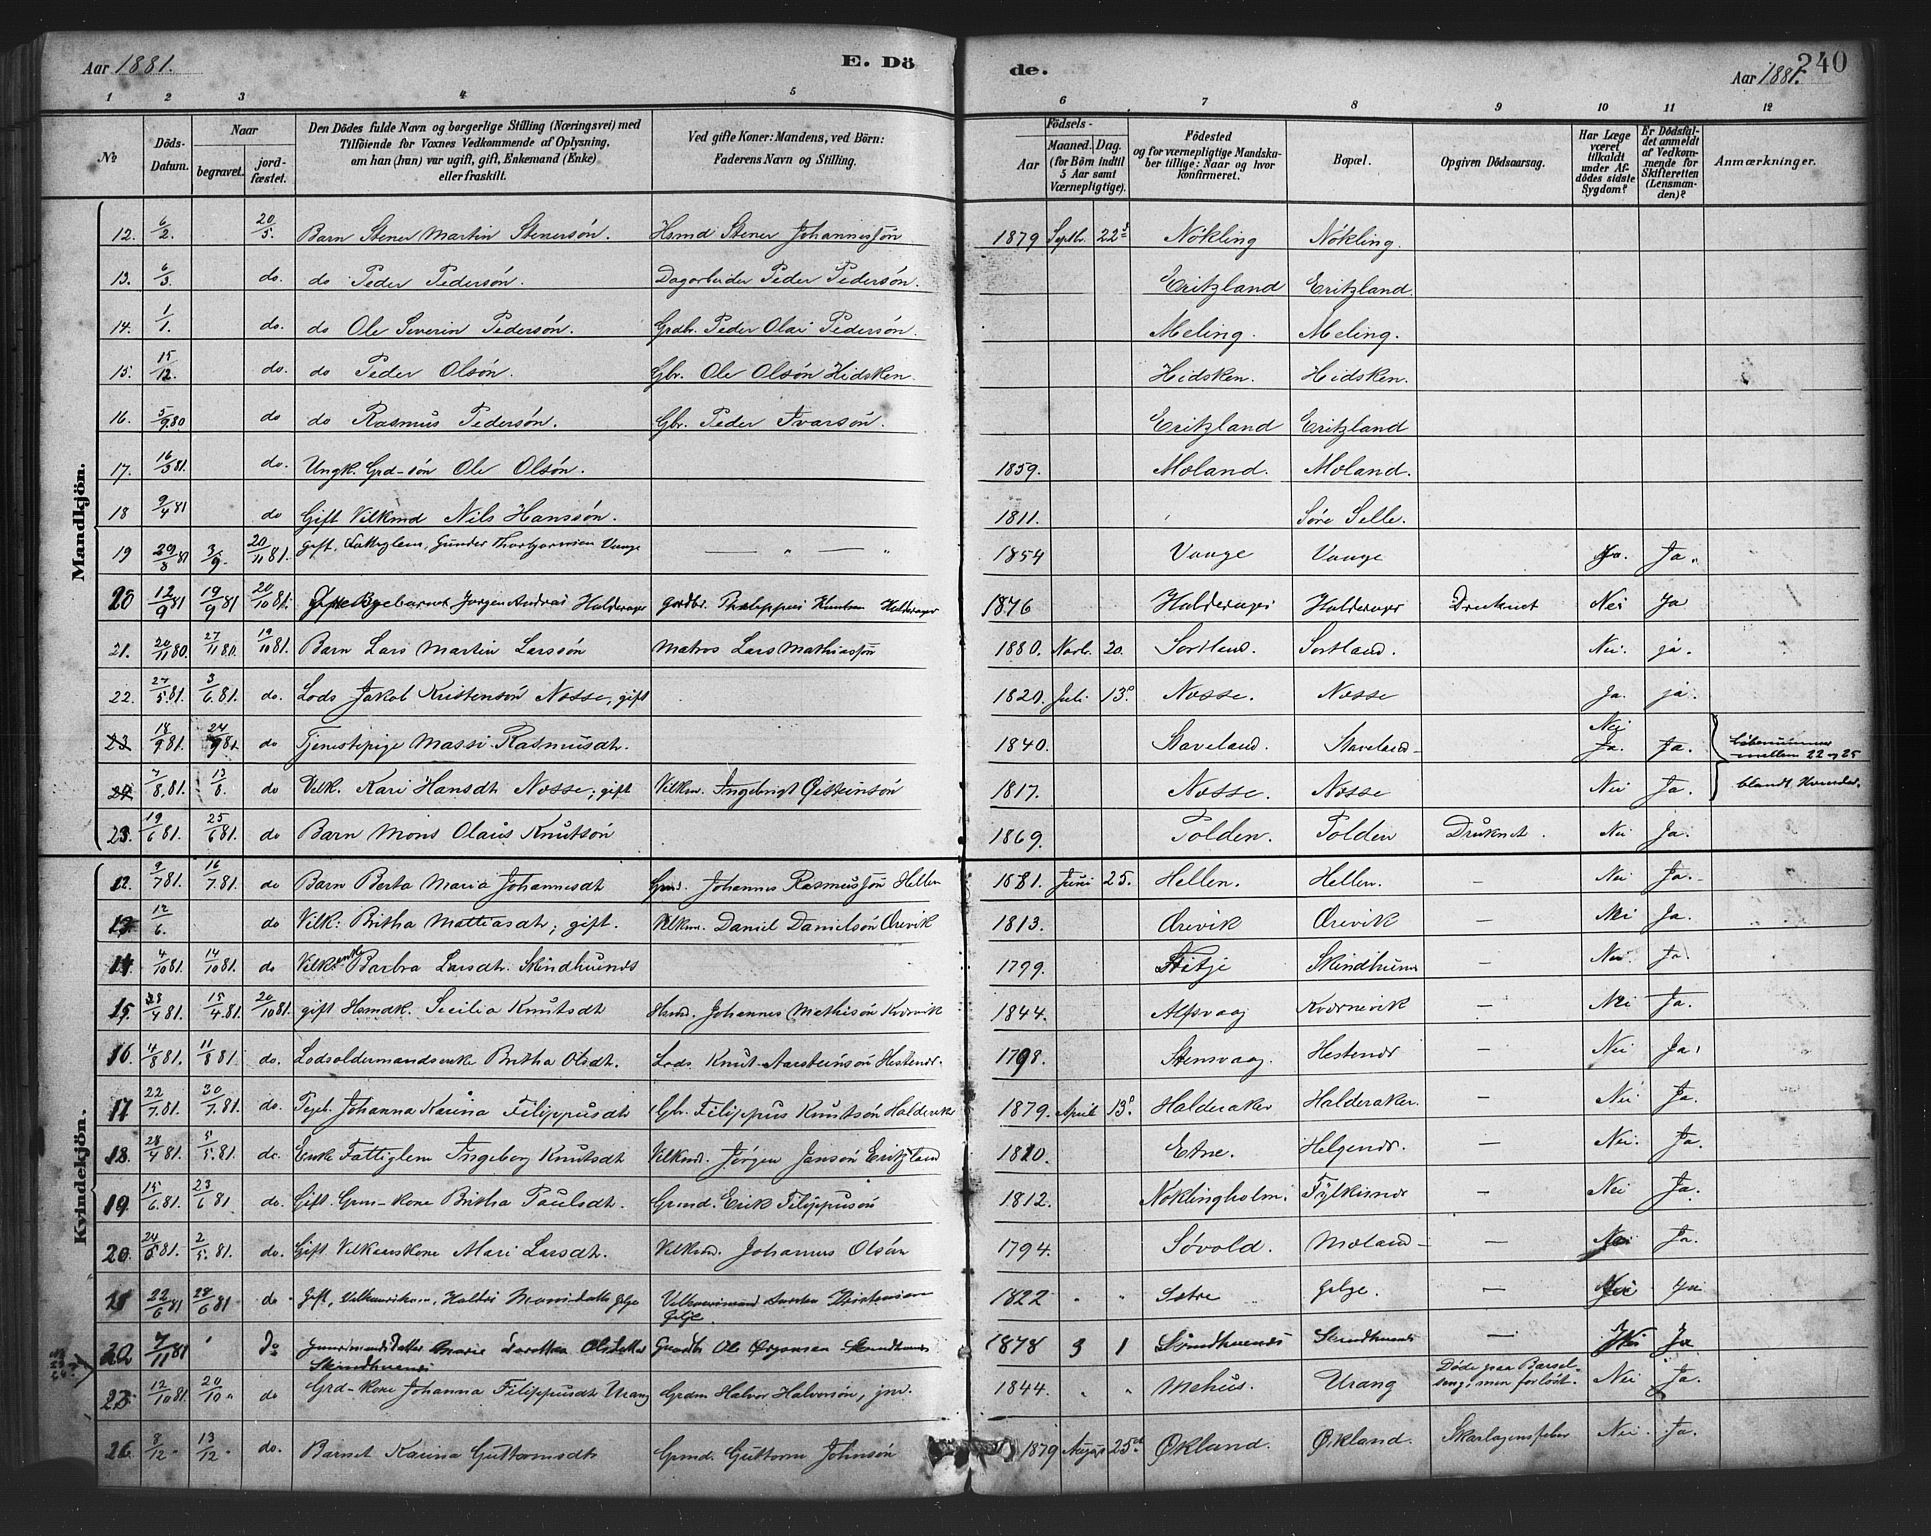 Aar 1881. E. Dö de. Aar 1881. 240
1 2 3 4 5 6 7 8 9 10 11 12
№
Döds-Datum.
Naar
begravet.
jordfæstet.
Den Dödes fulde Navn og borgerlige Stilling (Næringsvei) med
Tilföiende for Voxnes Vedkommende af Oplysning,
om han (hun) var ugift, gift, Enkemand (Enke)
eller fraskilt.
Ved gifte Koner: Mandens, ved Börn:
Faderens Navn og Stilling.
Födsels-
Aar
Maaned. Dag.
(for Börn indtil
5 Aar samt
Værnepligtige).
Födested
og for værnepligtige Mandska-
ber tillige: Naar og hvor
konfirmeret.
Bopæl.
Opgiven Dödsaarsag.
Har Læge
været
tilkaldt
under Af-
dödes sidste
Sygdom?
Er Dödsfal-
det anmeldt
af Vedkom-
mende for
Skifteretten
(Lensman-
den)?
Anmærkninger.
Mandkjön.
12. 6/2. 20/5. Barn Stener Martin Stenersön. Hsmd Stener Johannessön 1879 Septbr. 22 Nökling Nökling.
13. 6/3. do. do Peder Pedersön. Dagarbeider Peder Pedersön. Eritzland Eritzland.
14. 1/1. do. do Ole Severin Pedersön. Grdbr. Peder Olai Pedersön. Meling. Meling.
15. 15/12. do. do Peder Olsön. Gbr. Ole Olsön Hidsken. Hidsken. Hidsken.
16. 5/9 80 do do Rasmus Pedersön. Gbr. Peder Ivarsön. Eritzland Eritzland
17. 16/5 81. do. Ungk. Grd-sön Ole Olsön. 1859. Moland. Moland.
18 9/4 81 do Gift Vilkmd Nils Hanssön. 1811. Söre Selle.
19 29/8 81 3/9. 20/11 81. gift, Gunder Vange — " — " 1854 Vange Vange Ja. Ja.
20 12/9 81 19/9 81 20/10 81. Jörgen Andreas Halderager gardbr. Philippus Knutsen Halderager 1876 Halderager Halderager Druknet Nei Ja
21. 20/11 80. 27/11 80. 19/10 81. Barn Lars Martin Larssön Matros Lars Mathiassön 1880. Novb. 20. Sortland. Sortland. Nei. ja.
22. 27/5. 81. 3/6. 81. do. Lods Jakob Kristensön Nosse, gift 1820. Juli 13. Nosse. Nosse Ja. ja.
23 18/9 81. 24/9 81. do Tjenestepige Massi Rasmusdt. 1840. Staveland. Staveland Nei Ja. Ja. Löbenummer mellem 22 og 25
24 7/8. 81. 13/8. do Vilk. Kari Hansdt Nosse; gift Vilkm. Ingebrigt Öisteinsön 1817. Nosse. Nosse Nei Ja. blandt Kvinder.
23. 19/6 81. 25/6 81. do Barn Mons Olaus Knutsön 1869. Folden. Folden Druknet. Nei Ja.
Kvindekjön.
12. 9/7 81. 16/7. 81. do Barn Berta Maria Johannesdt Grmd. Johannes Rasmussön Hellen 1881. Juni 25. Hellen. Hellen. — Nei Ja.
13. 12/6. do Vilk: Britha Mattiasdt; gift. Vilkm. Daniel Danielsön Ørevik 1813. Ørevik Ørevik — Nei Ja.
14 4/10 81. 14/10 81. do Vilk. enke Barbra Larsdt. Skindhuenes 1799. Fitje Skindhuenes — Nei. Ja.
15. 4 81. 15/4. 81. 20/10 81. gift Hsmdk. Secilia Knutsdt Hsmd. Johannes Mathisön Kvernevik 1844. Alfsvaag Kvernevik — Nei Ja.
16. 4/8 81. 11/8 81. do. Lodsoldermandsenke Britha Olsdt. Lods Knut Aarsteinsön Hestenes. 1798. Stensvaag. Hestenes — Nei Ja.
17 22/7. 81. 30/7. 81. do. Johanna Karina Filippusdt Gbr. Filippus Knutsön Halderaker 1879. April 13. Halderaker Halderaker. — Nei Ja.
18. 28/4 81. 5/5. 81. do. Enke Fattiglem Ingeborg Knutsdt Vilkmd. Jörgen Jansön Eritzland 1810. Etne. Helgenes. — Nei. Ja.
19. 15/6. 81. 23/6 81. do. Gift. Grm-kone Britha Paulsdt. Grmd. Erik Filippusön 1812. Noklingholm. Fylkesnes — Nei Ja.
20. 24 81. 2/5. 81. do. Gift Vilkaarskone Mari Larsdt. Vilkmd. Johannes Olsön 1794. Sövold. Moland — Nei Ja.
21 22/6 81 28/6 81 do Gift, Vilkaarskone, Gilje Vilkaarsmand Gilje. 1822 " " Sætre Gilje. Nei Ja
7/11 81 " Do Marie Dorothea Olsdatter Skindhuenes Gaardbr Ole Skindhuenes 1878 3 1 Skindhuenes Skindhuenes — Nei Ja
25. 12/10 81. 20/10 " do Grd-kone Johanna Filippusdt Urang Grdm Halvor Halvorsön, jnr. 1844. " " Mehus. Urang Döde paa Barsel-seng, men forlöst. Nei Ja.
26. 8/12 " 13/12 " do. Barnet Karina Guttormsdt Grmd. Guttorm Johnsön 1879 August 25 Økland. Økland. Skarlagensfeber Nei. Ja.